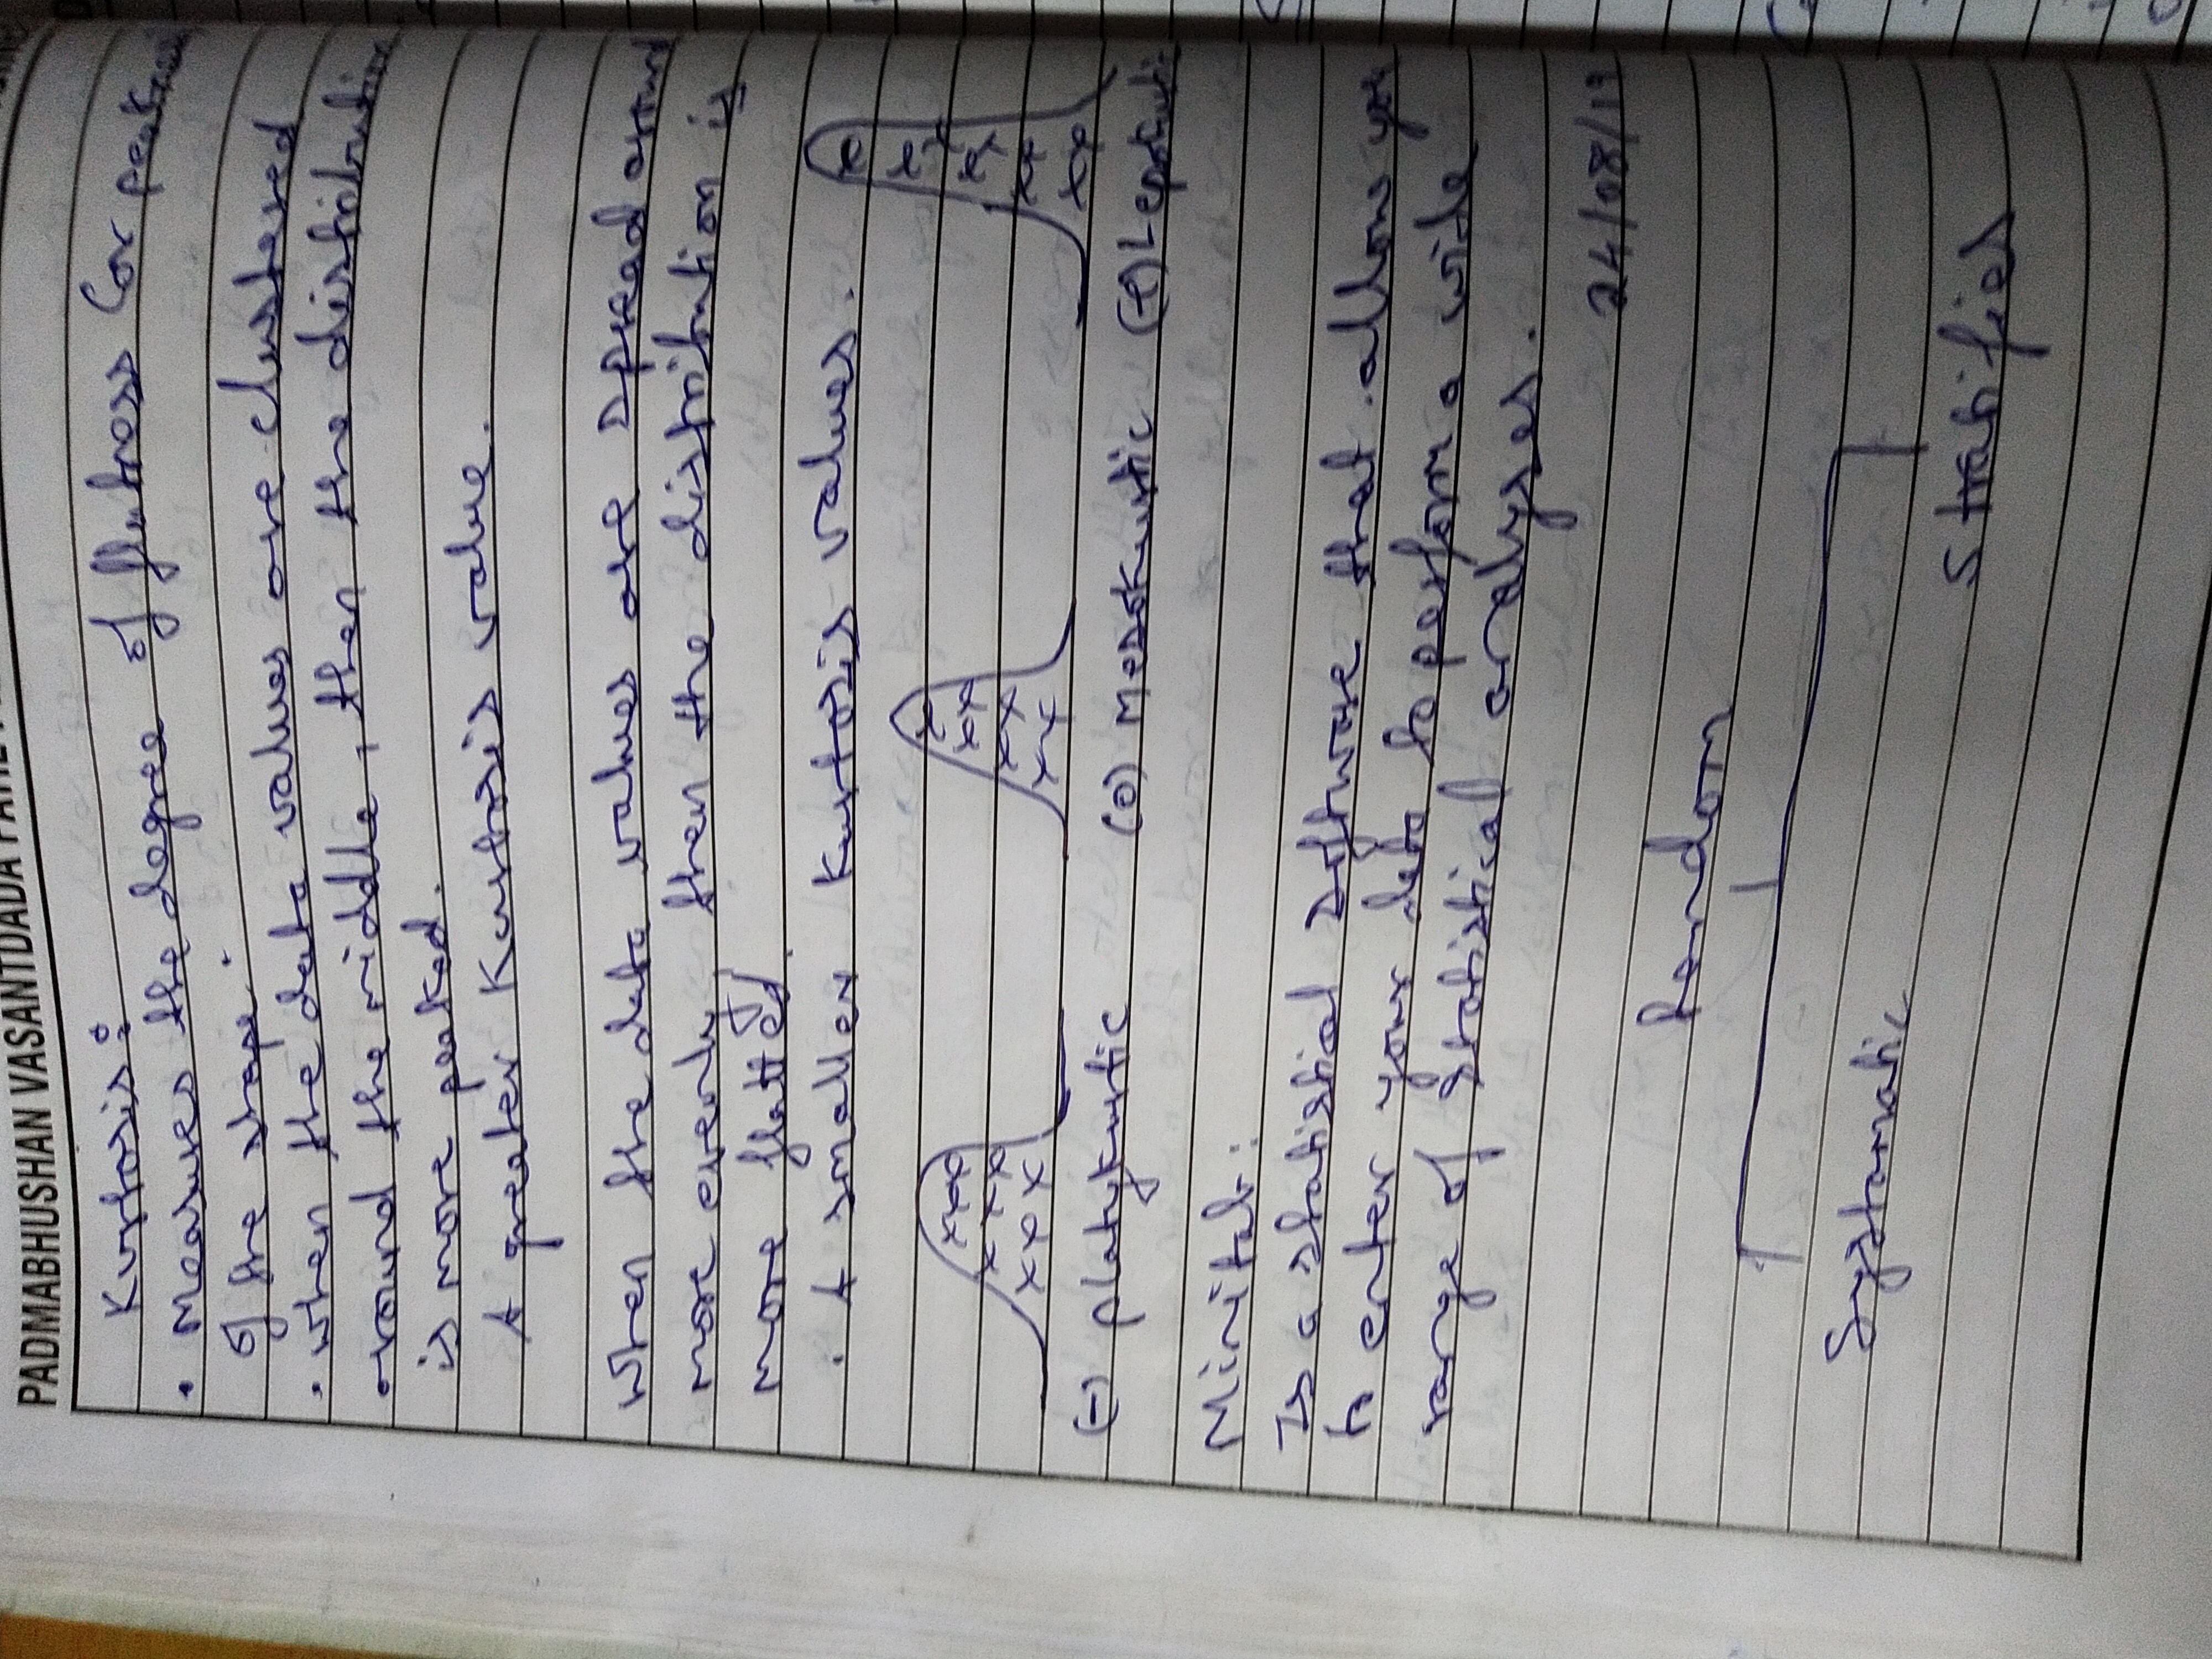 PADMABHUSHAN VASANTDADA
Kurtosis :
• Measures the degree of flatness (or peakness
of the shape.
• when the data values are clustered
around the middle, then the distribution
is more peaked.
A greater Kurtosis value.
When the data values are spread around
more evenly, then the distribution is
more flatted.
. A smaller Kurtosis values.
(-) platykurtic (0) Mesokurtic (+) Leptokurtic
Minitab :
Is a statistical software that allows you
to enter your data to perform a wide
range of statistical analyses.
24/08/19
Random
Systamatic
Stratified